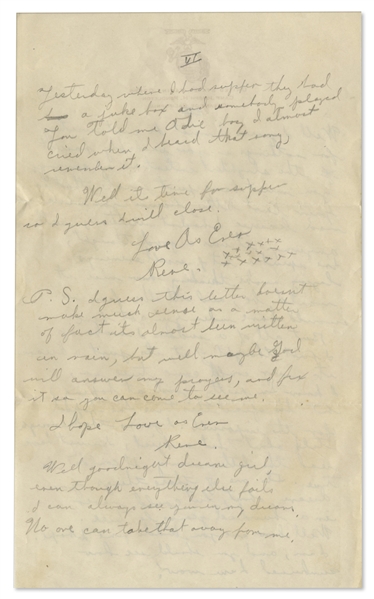 VI
Yesterday where I had supper they had
a juke box and somebody played
You told me A Lie boy I almost
cried when I heard that song,
remember it.
Well it time for supper
so I guess I will close.
Love As Ever
Rene.
x x x x x
x x x x x
x x x x x
P.S. I guess this letter doesn't
make much sense as a matter
of fact its almost been written
in vain, but well maybe God
will answer my prayers, and fix
it so you can come to see me.
I hope Love as Ever
Rene.
Well goodnight dream girl,
even though everything else fails
I can always see you in my dream.
No one can take that away from me.